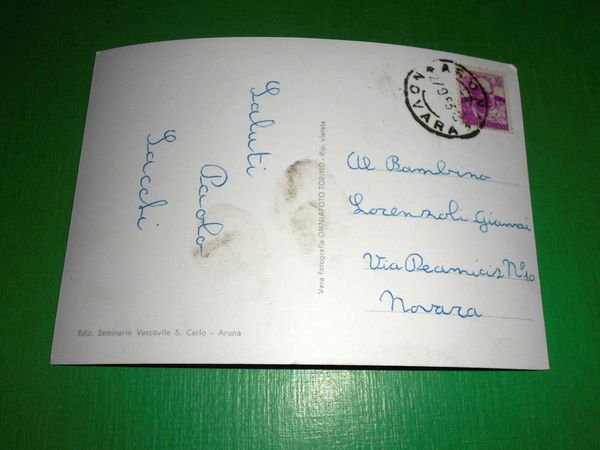 Saluti
Paolo
Sacchi
Vera fotografia OMNIAFOTO TORINO - Rip. vietata
Ediz. Seminario Vescovile S. Carlo - Arona
ARONA
NOVARA
Al Bambino
Lorenzoli Gianni
Via Deamicis N° 10
Novara